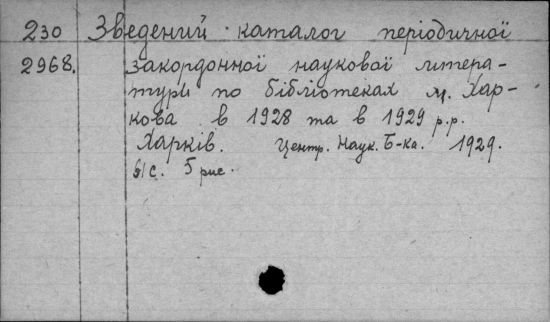 230 Зведений каталог періодичної
2968. закордонної наукової литера-
тури по бібліотеках м. Хар-
кова в 1928 та в 1929 р.р.
Харків. Центр. Наук. Б-ка. 1929.
61 с. 5 рис.